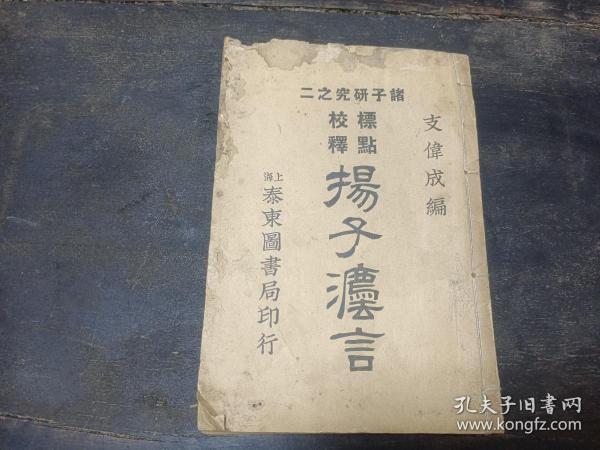 諸子研究之二
支偉成編
標點
校釋
揚子灋言
上海
泰東圖書局印行
孔夫子旧书网
www.kongfz.com